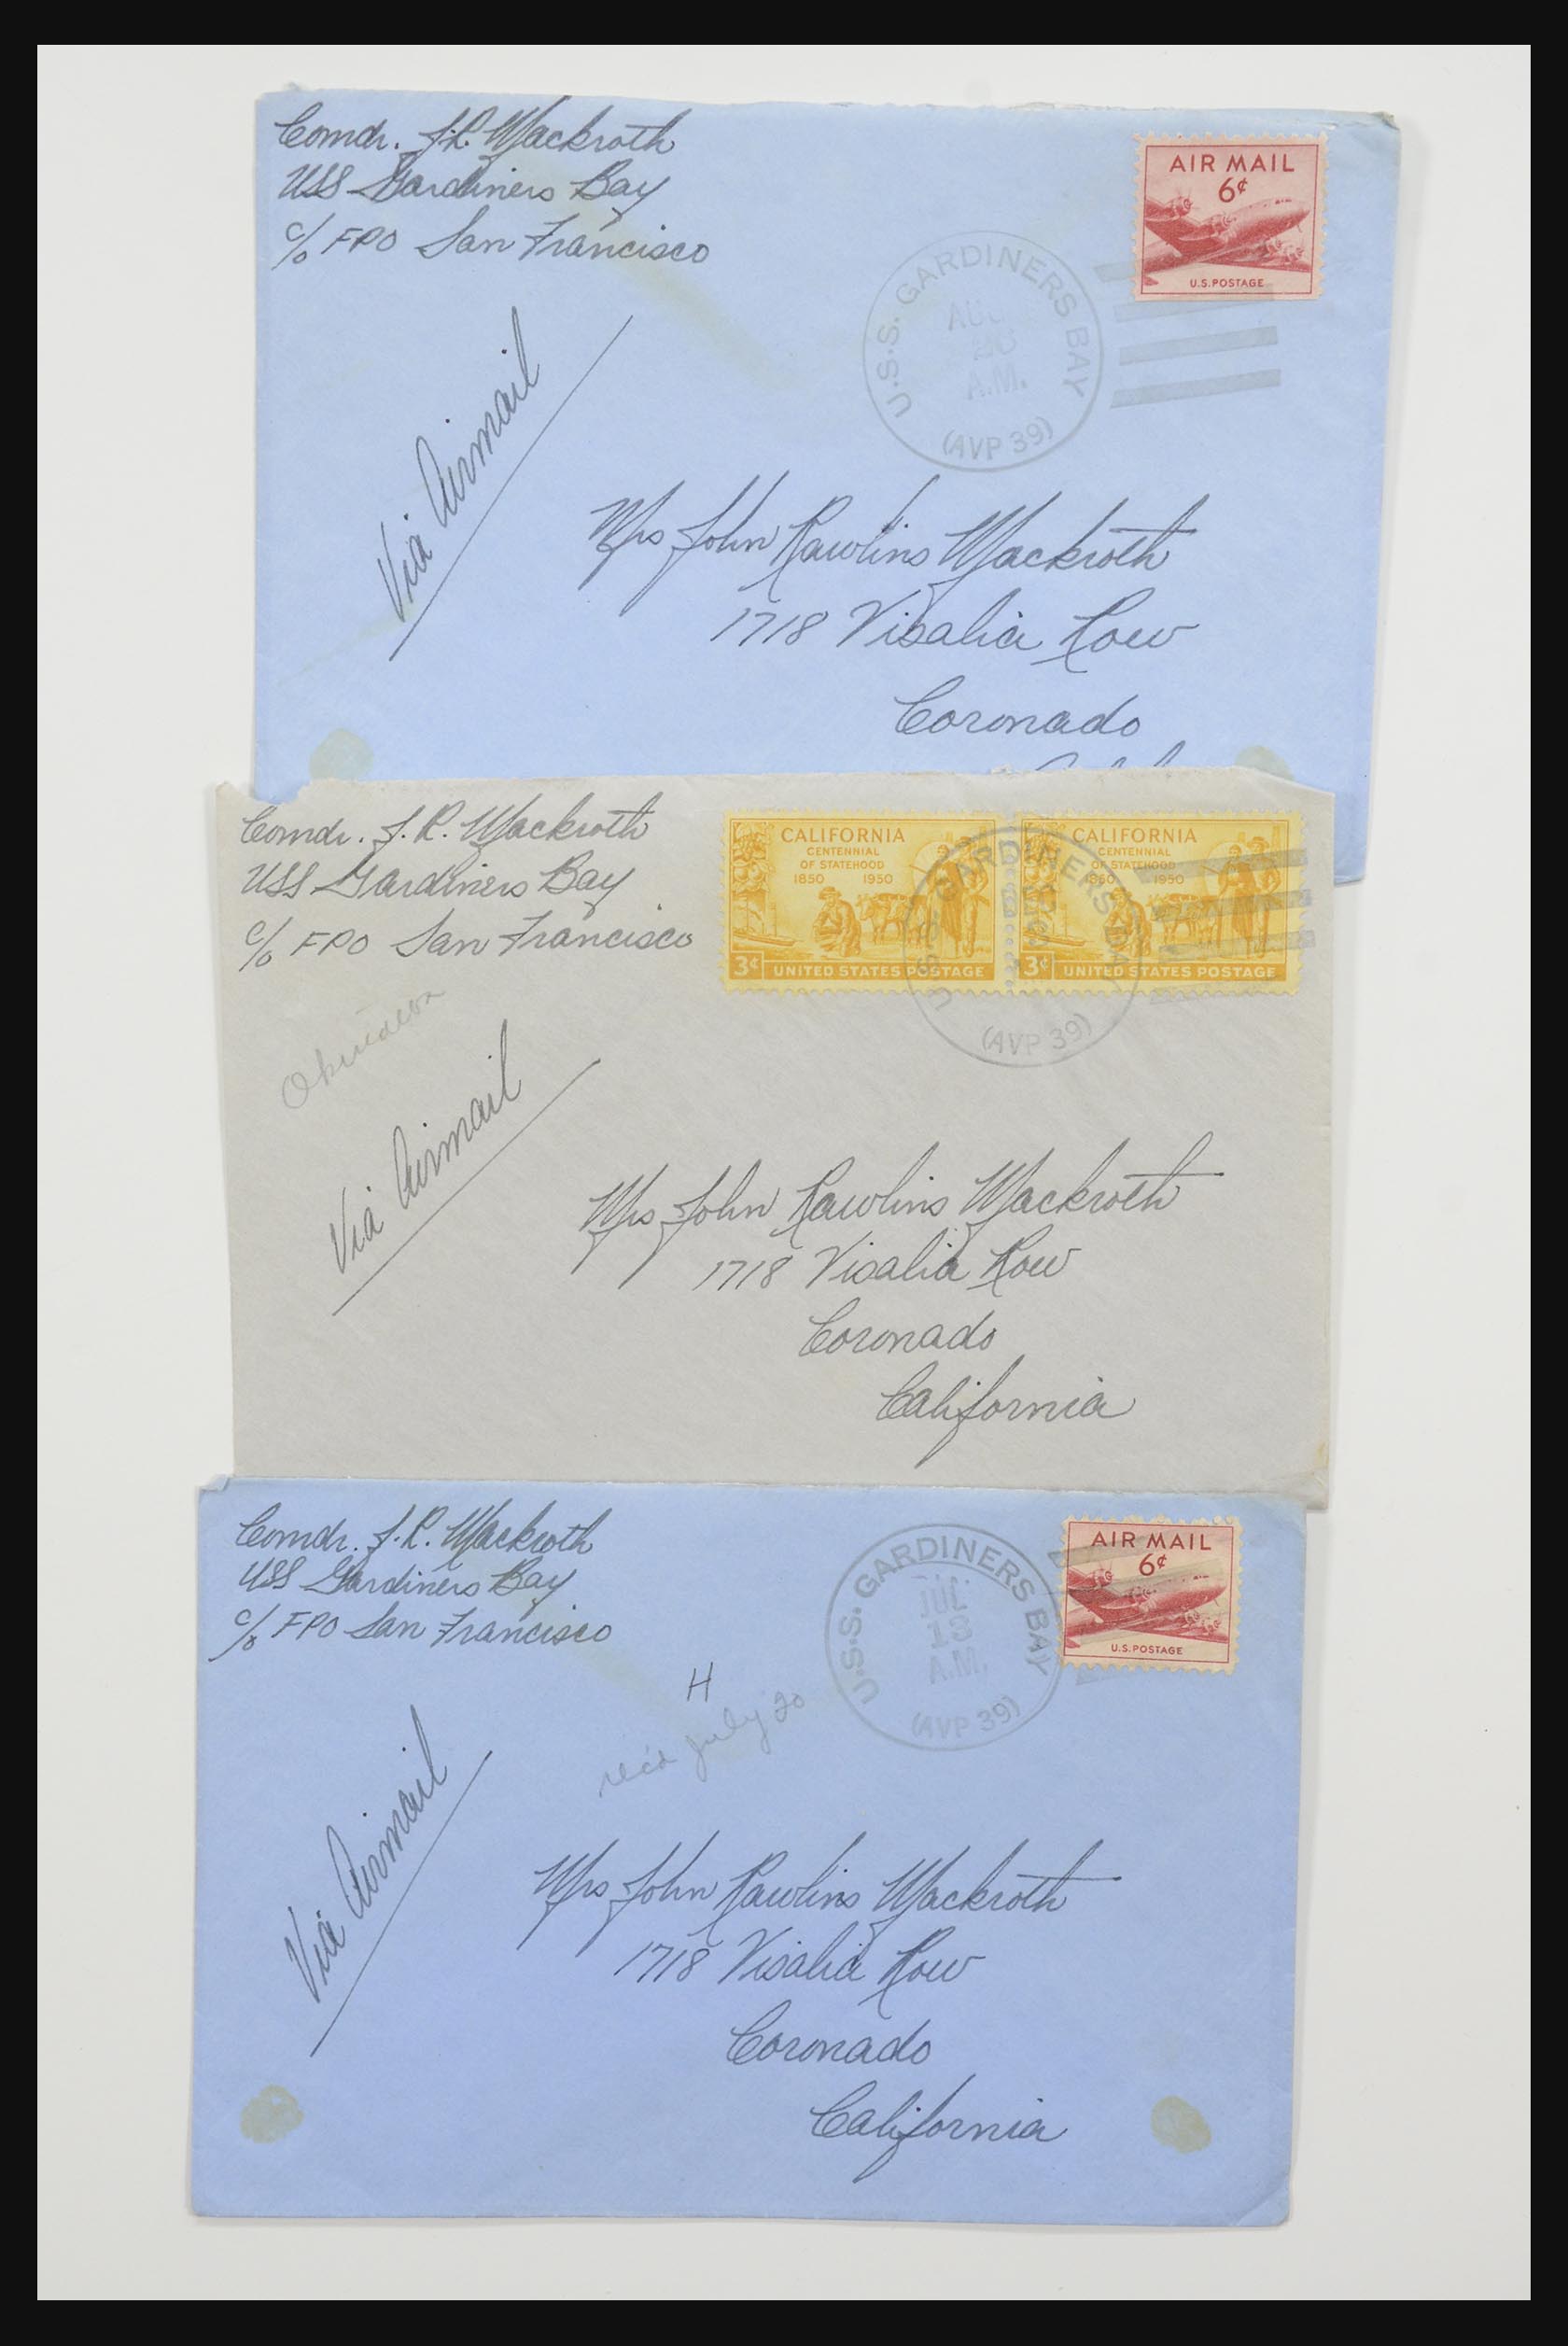 Comdr. J.R. Mackroth
USS Gardiners Bay
c/o FPO San Francisco
AIR MAIL
6¢
U.S. POSTAGE
U.S.S. GARDINERS BAY
AUG
A.M.
(AVP 39)
Via Airmail
Mrs John Rawlins Mackroth
1718 Visalia Row
Coronado
Comdr. J.R. Mackroth
USS Gardiners Bay
c/o FPO San Francisco
CALIFORNIA
CENTENNIAL
OF STATEHOOD
1850 1950
3¢ UNITED STATES POSTAGE
CALIFORNIA
CENTENNIAL
OF STATEHOOD
1850 1950
3¢ UNITED STATES POSTAGE
U.S.S. GARDINERS BAY
(AVP 39)
Via Airmail
Mrs John Rawlins Mackroth
1718 Visalia Row
Coronado
California
Comdr. J.R. Mackroth
USS Gardiners Bay
c/o FPO San Francisco
AIR MAIL
6¢
U.S. POSTAGE
U.S.S. GARDINERS BAY
JUL
13
A.M.
(AVP 39)
H
rec'd July 20
Via Airmail
Mrs John Rawlins Mackroth
1718 Visalia Row
Coronado
California